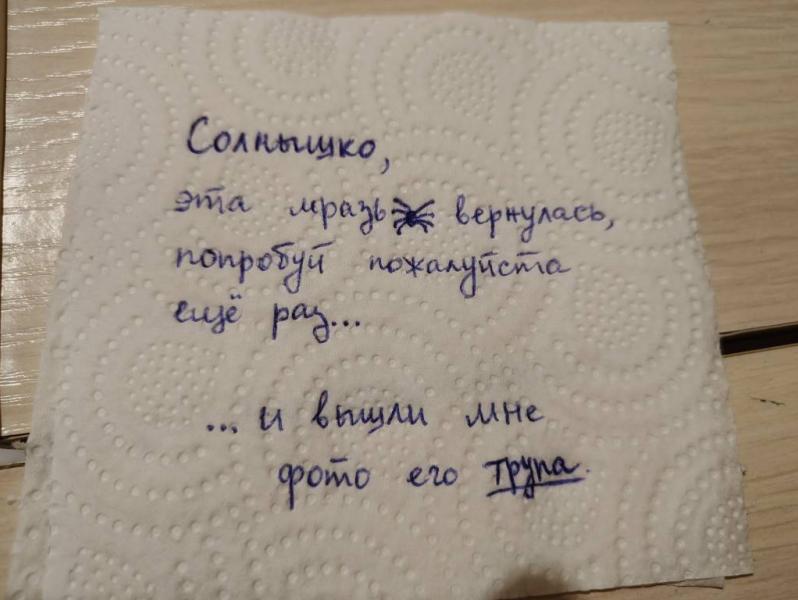 Солнышко,
эта мразь вернулась,
попробуй пожалуйста
ещё раз...
... и вышли мне
фото его трупа.